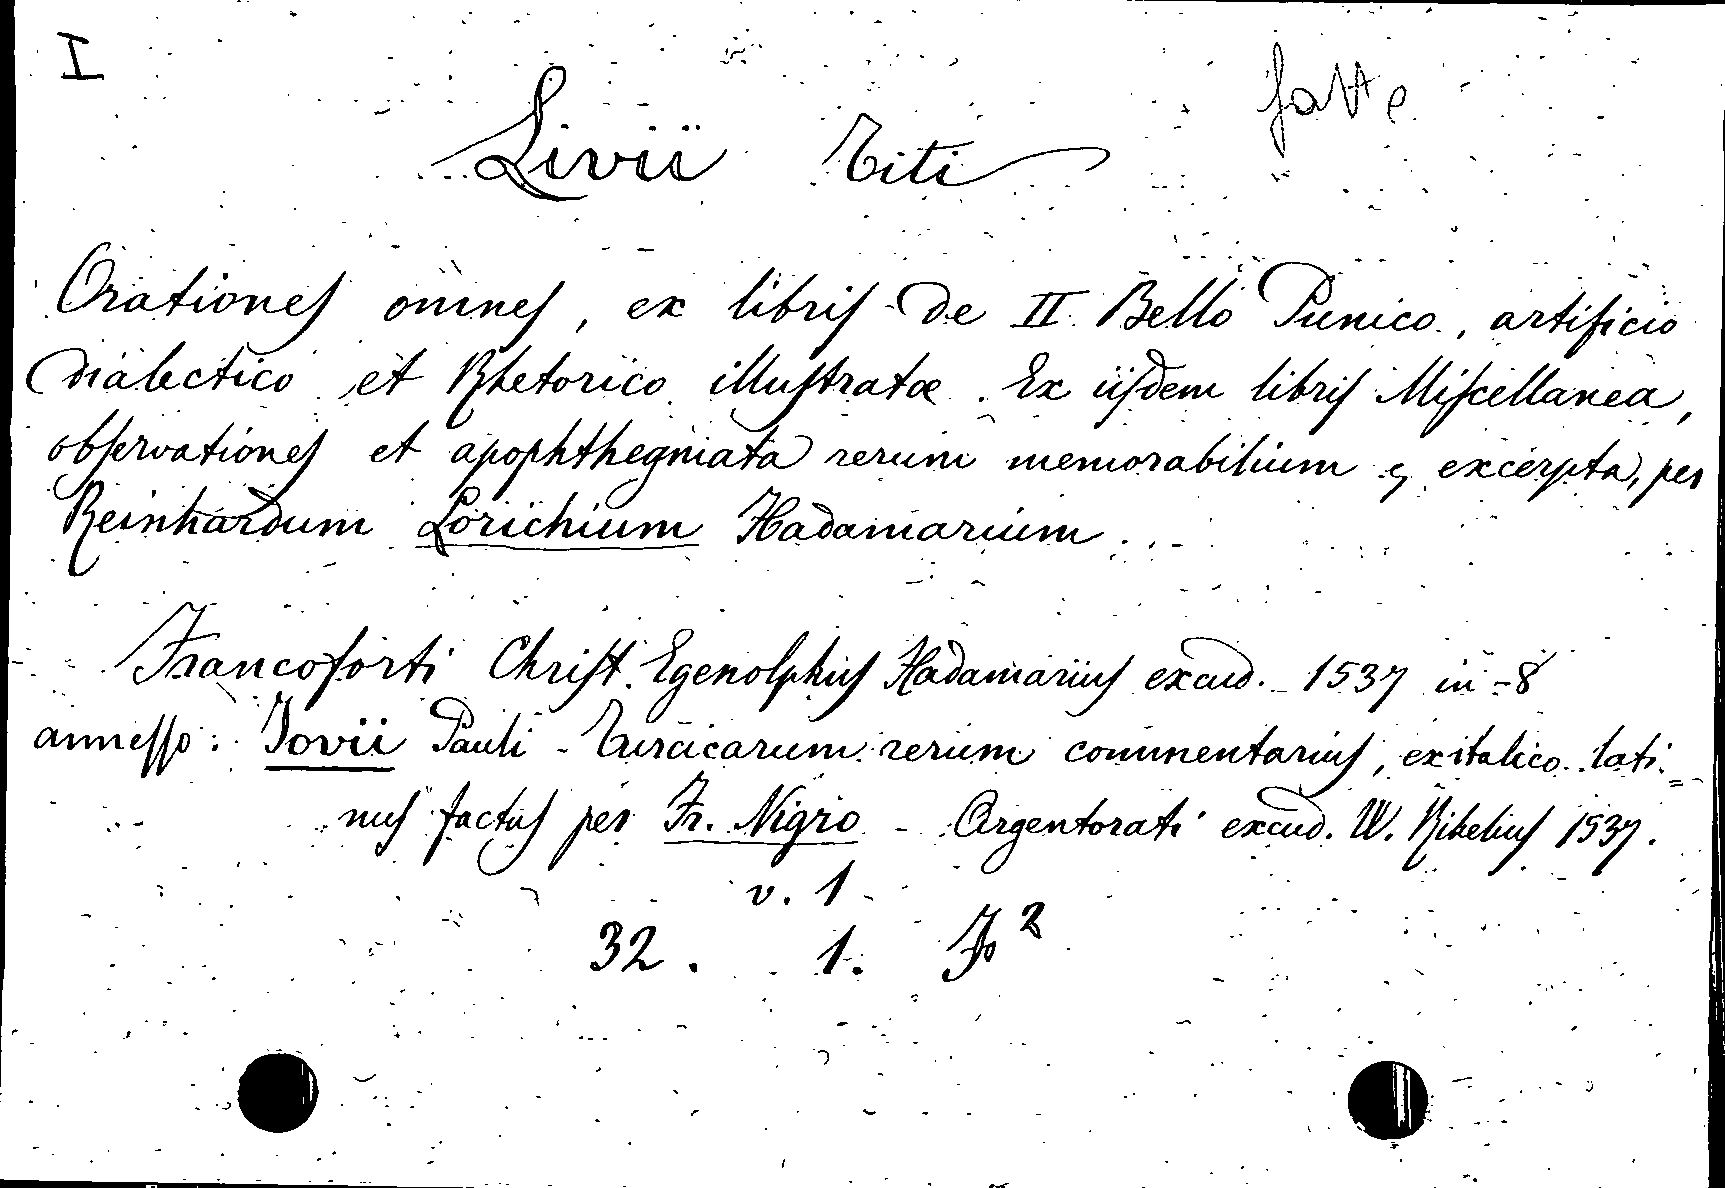 I
fatte
Livii Titi
Orationes omnes, ex libris de II Bello Punico, artificio
dialectico et Rhetorico illustratæ. Ex iisdem libris Miscellanea,
observationes et apophthegmata rerum memorabilium, excerpta, per
Reinhardum Lorichium Hadamarium.
Francoforti Christ. Egenolphius Hadamarius excud. 1537 in-8
annesso: Jovii Pauli - Turcicarum rerum commentarius, ex italico lati=
nus factus per Fr. Nigro - Argentorati excud. W. Rihelius 1537.
v. 1
32. 1. F²